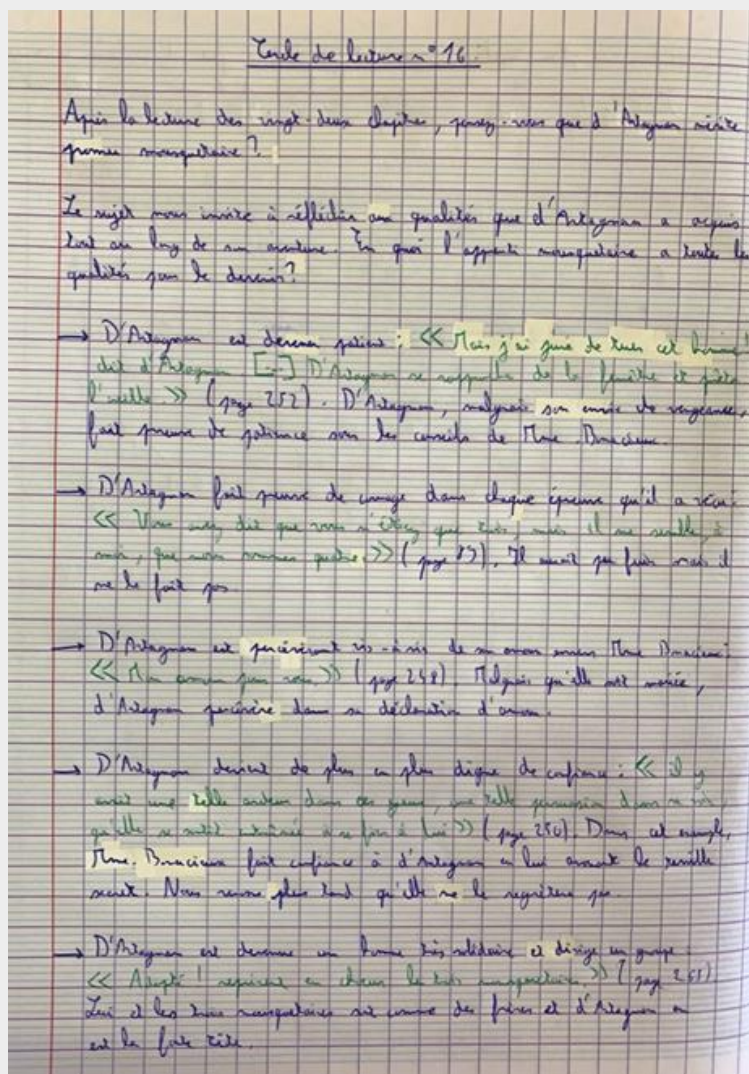 Cercle de lecture n°16
Après la lecture des vingt-deux chapitres, pensez-vous que d'Artagnan mérite
promu mousquetaire ?
Le sujet nous invite à réfléchir aux qualités que d'Artagnan a acquis
tout au long de son aventure. En quoi l'apprenti mousquetaire a toutes les
qualités pour le devenir ?
→ D'Artagnan est devenu patient : << Mais j'ai juré de tuer cet homme !
dit d'Artagnan [...] D'Artagnan se rapprocha de la fenêtre et prêta
l'oreille. >> (page 252). D'Artagnan, malgrais son envie de vengeance,
fait preuve de patience sous les conseils de Mme. Bonacieux.
→ D'Artagnan fait preuve de courage dans chaque épreuve qu'il a vécu :
<< Vous avez dit que vous n'étiez que trois, mais il me semble, à
moi, que nous sommes quatre. >> (page 89). Il aurait pu fuir mais il
ne le fait pas.
→ D'Artagnan est percévérant vis-à-vis de son amour envers Mme Bonacieux :
<< Mon amour pour vous. >> (page 248). Malgrais qu'elle soit mariée,
d'Artagnan percévère dans sa déclaration d'amour.
→ D'Artagnan devient de plus en plus digne de confiance : << il y
avait une telle ardeur dans ses yeux, une telle persuasion dans sa voix,
qu'elle se sentit entraînée à se fier à lui >> (page 250). Dans cet exemple,
Mme. Bonacieux fait confiance à d'Artagnan en lui avouant le terrible
secret. Nous verrons plus tard qu'elle ne le regrètera pas.
→ D'Artagnan est devenu un homme très solidaire et dirige un groupe :
<< Adopté ! reprirent en chœur les trois mousquetaires. >> (page 261)
Lui et les trois mousquetaires sont comme des frères et d'Artagnan en
est la forte tête.